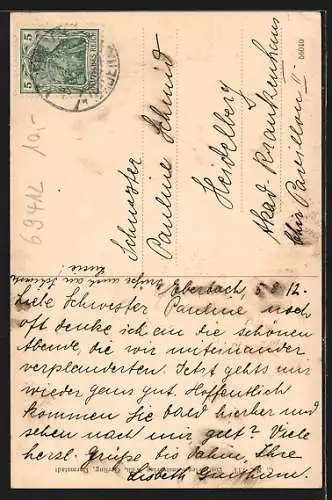 5 5
DEUTSCHES REICH
Schwester
Pauline Schmid
Heidelberg
Akad. Krankenhaus
Pavillon II
56010
69412 10,-
Grüße auch an Schwester
Luise!
Eberbach, 5.8.12.
Liebe Schwester Pauline, noch
oft denke ich an die schönen
Abende, die wir miteinander
verplauderten. Jetzt geht's mir
wieder ganz gut. Hoffentlich
kommen Sie bald hierher und
sehen nach mir, gelt? Viele
herzl. Grüße bis dahin, Ihre
Lisbeth
Darmstadt